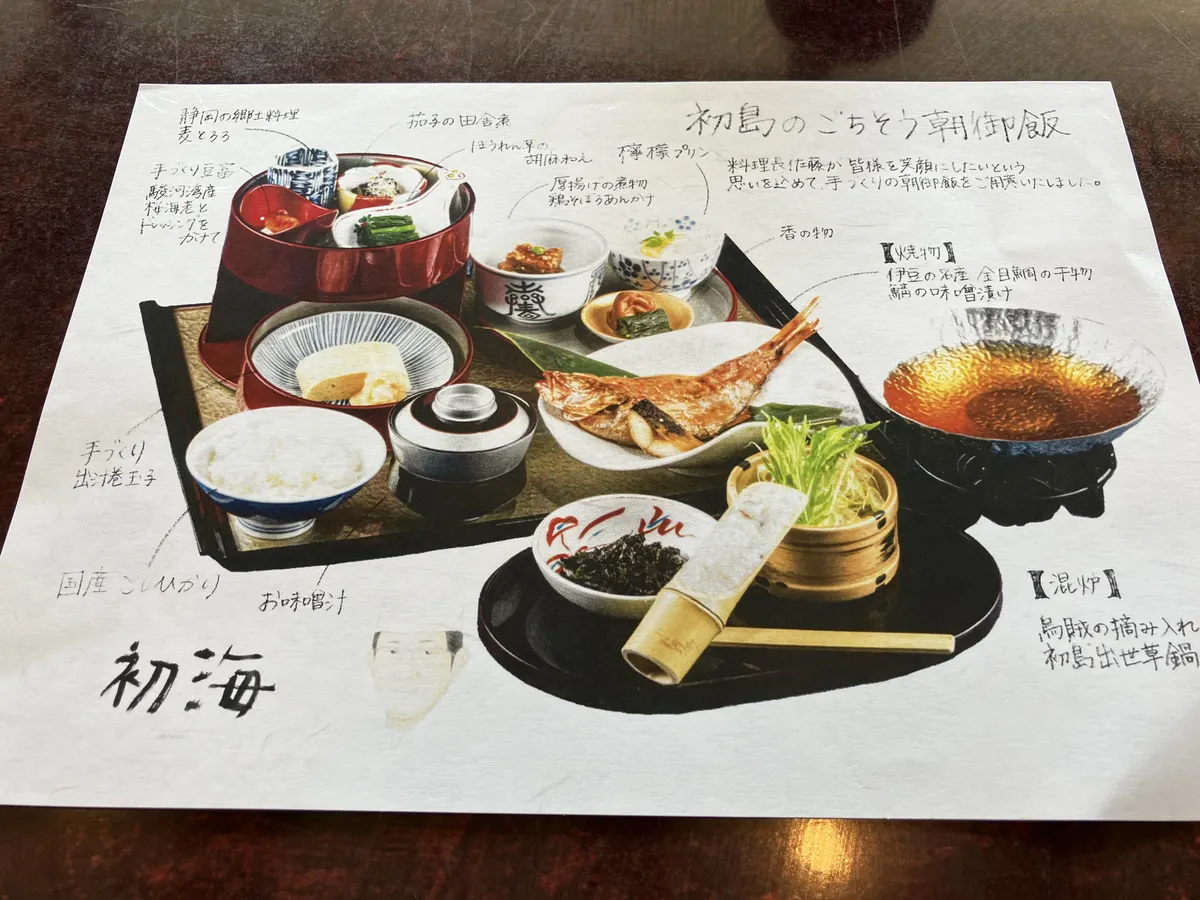 初島のごちそう朝御飯
料理長佐藤が 皆様を笑顔にしたいという
思いを込めて、手づくりの朝御飯をご用意いたしました。
静岡の郷土料理
麦とろろ
茄子の田舎煮
ほうれん草の
胡麻和え
檸檬プリン
手づくり豆富
駿河湾産
桜海老と
ドレッシングを
かけて
厚揚げの煮物
鶏そぼろあんかけ
香の物
【焼物】
伊豆の名産 金目鯛の干物
鯖の味噌漬け
手づくり
出汁巻玉子
国産 こしひかり
お味噌汁
【混炉】
烏賊の摘み入れ
初島出世草鍋
初海